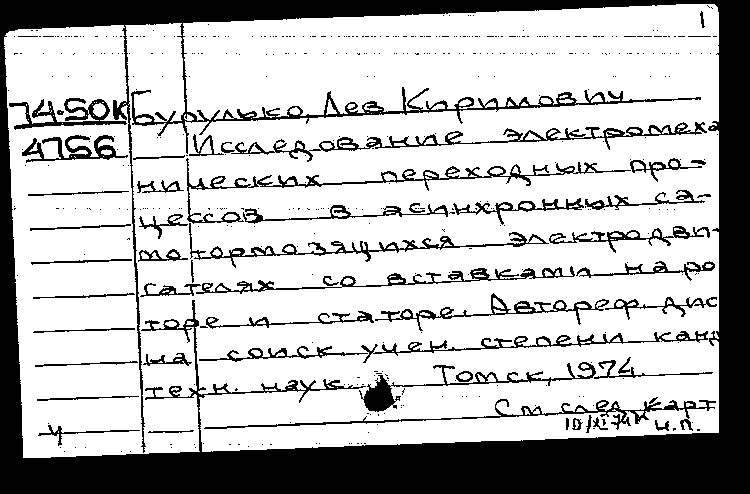 1
74-50К Бурулько, Лев Киримович.
4756 Исследование электромеха
нических переходных про-
цессов в асинхронных са-
мотормозящихся электродви-
гателях со вставками на ро
торе и статоре. Автореф. дис
на соиск. учен. степени канд
техн. наук. Томск, 1974.
См. след. карт
10/XI 74
н.п.
ч